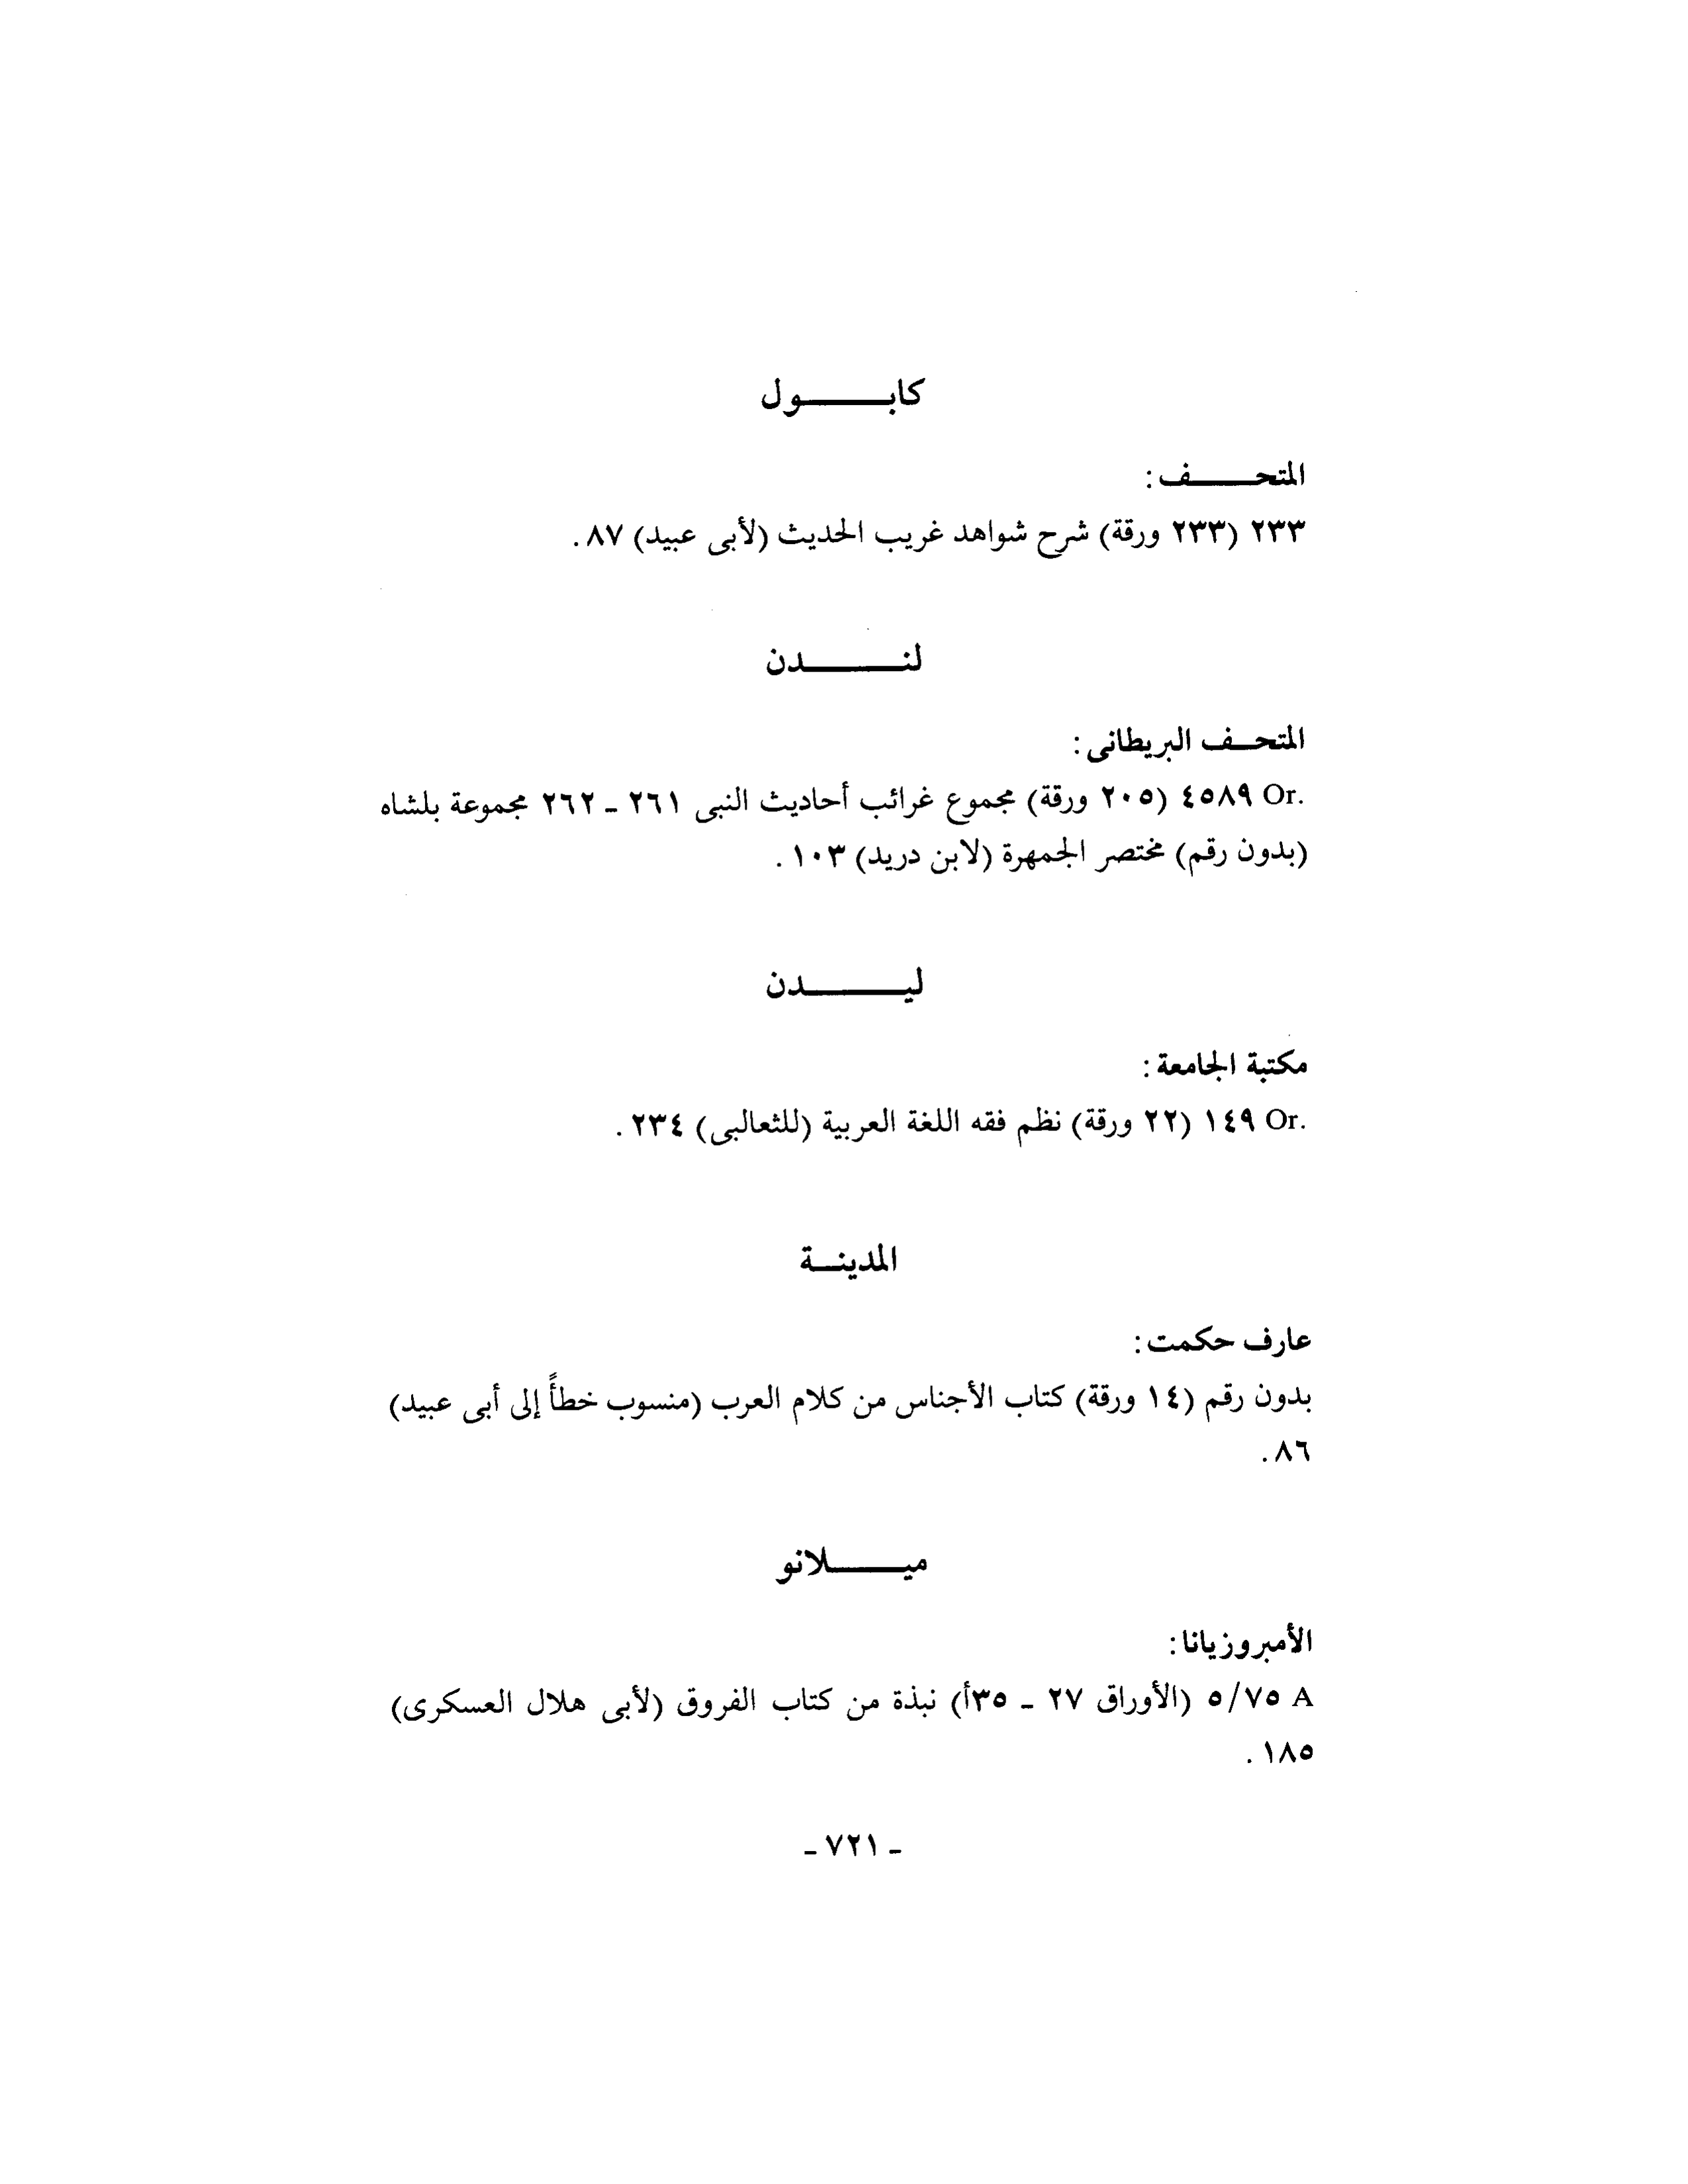 كابـــــــول
المتحـــــــف :
٢٣٣ (٢٣٣ ورقة) شرح شواهد غريب الحديث (لأبى عبيد) ٨٧ .
لنـــــــدن
المتحـــف البريطانى :
Or. ٤٥٨٩ (٢٠٥ ورقة) مجموع غرائب أحاديث النبى ٢٦١ ـ ٢٦٢ مجموعة بلشاه
(بدون رقم) مختصر الجمهرة (لابن دريد) ١٠٣ .
ليـــــــدن
مكتبة الجامعة :
Or. ١٤٩ (٢٢ ورقة) نظم فقه اللغة العربية (للثعالبى) ٢٣٤ .
المدينـــة
عارف حكمت :
بدون رقم (١٤ ورقة) كتاب الأجناس من كلام العرب (منسوب خطأً إلى أبى عبيد)
٨٦ .
ميـــــــلانو
الأمبروزيانا :
A ٥/٧٥ (الأوراق ٢٧ ـ ٣٥أ) نبذة من كتاب الفروق (لأبى هلال العسكرى)
١٨٥ .
ـ ٧٢١ ـ